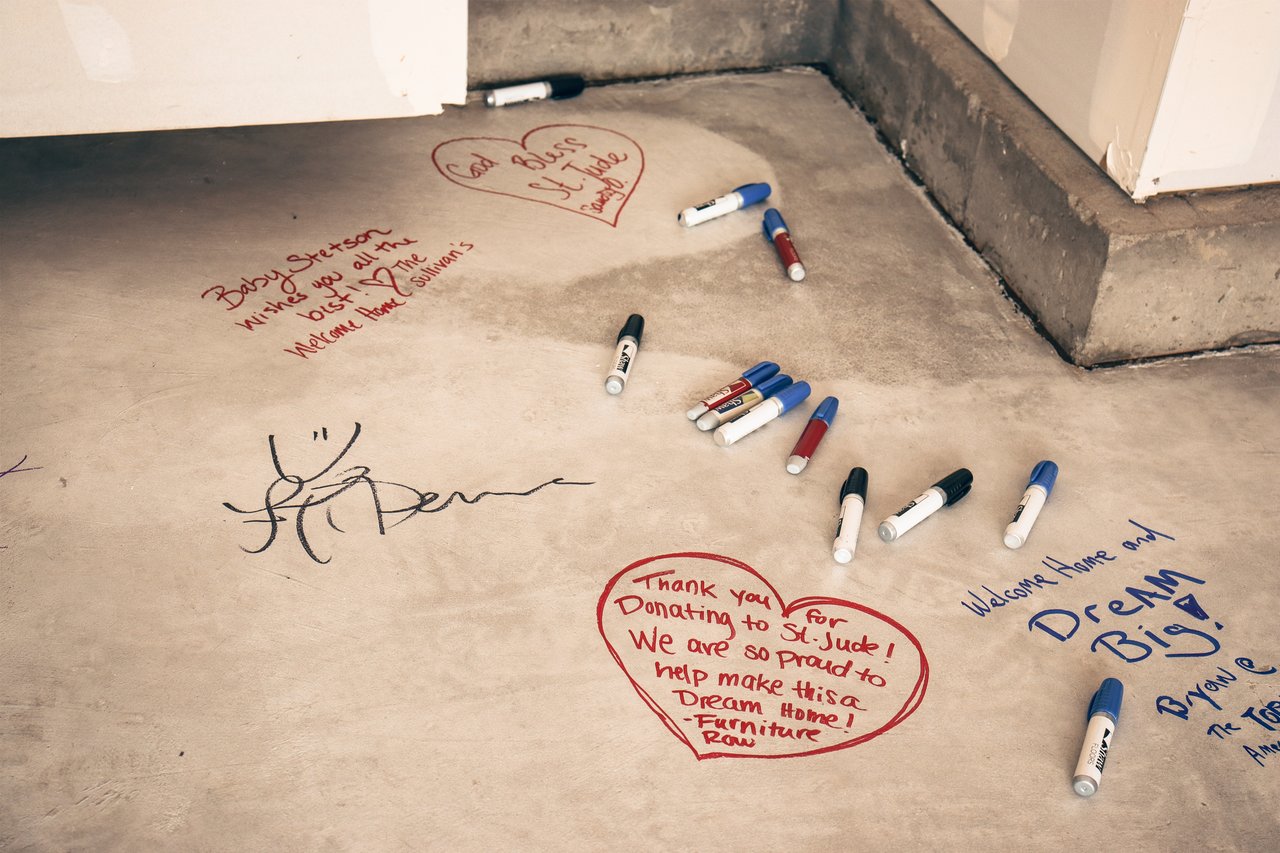 God Bless
St. Jude
Baby Stetson
wishes you all the
best! ♡ The
Welcome Home Sullivan's
Thank you for
Donating to St. Jude!
We are so proud to
help make this a
Dream Home!
-Furniture
Row
Welcome Home and
Dream
Big!
Bryan C
The